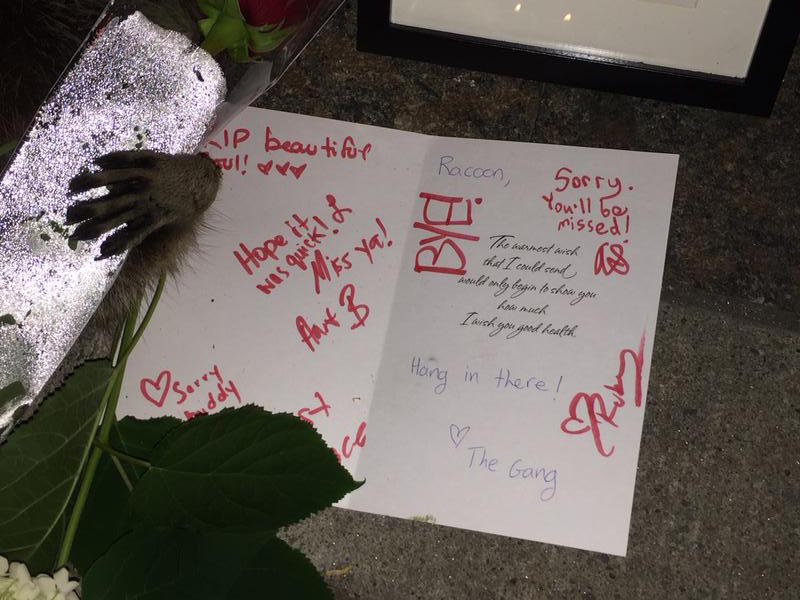 RIP beautiful
soul!
Hope it
was quick! &
Miss ya!
Aunt B
Sorry
buddy
Racoon,
BYE!
Sorry.
You'll be
missed!
The warmest wish
that I could send
would only begin to show you
how much
I wish you good health.
Hang in there!
The Gang